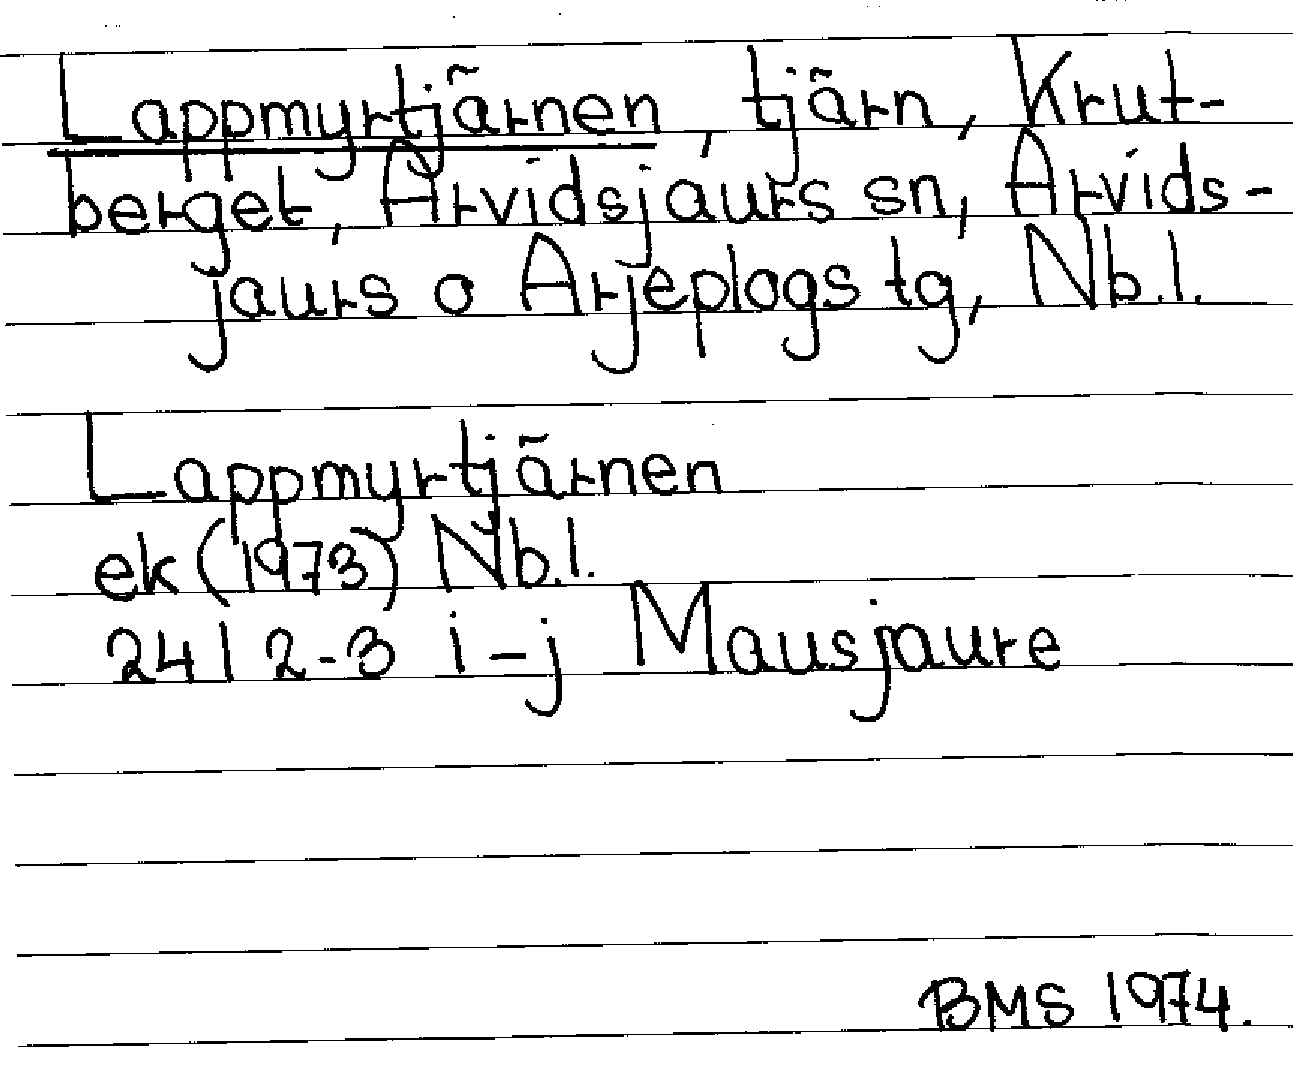 Lappmyrtjärnen, tjärn, Krut-
berget, Arvidsjaurs sn, Arvids-
jaurs o Arjeplogs tg, Nb.l.
Lappmyrtjärnen
ek (1973) Nb.l.
24 I 2-3 i-j Mausjaure
BMS 1974.